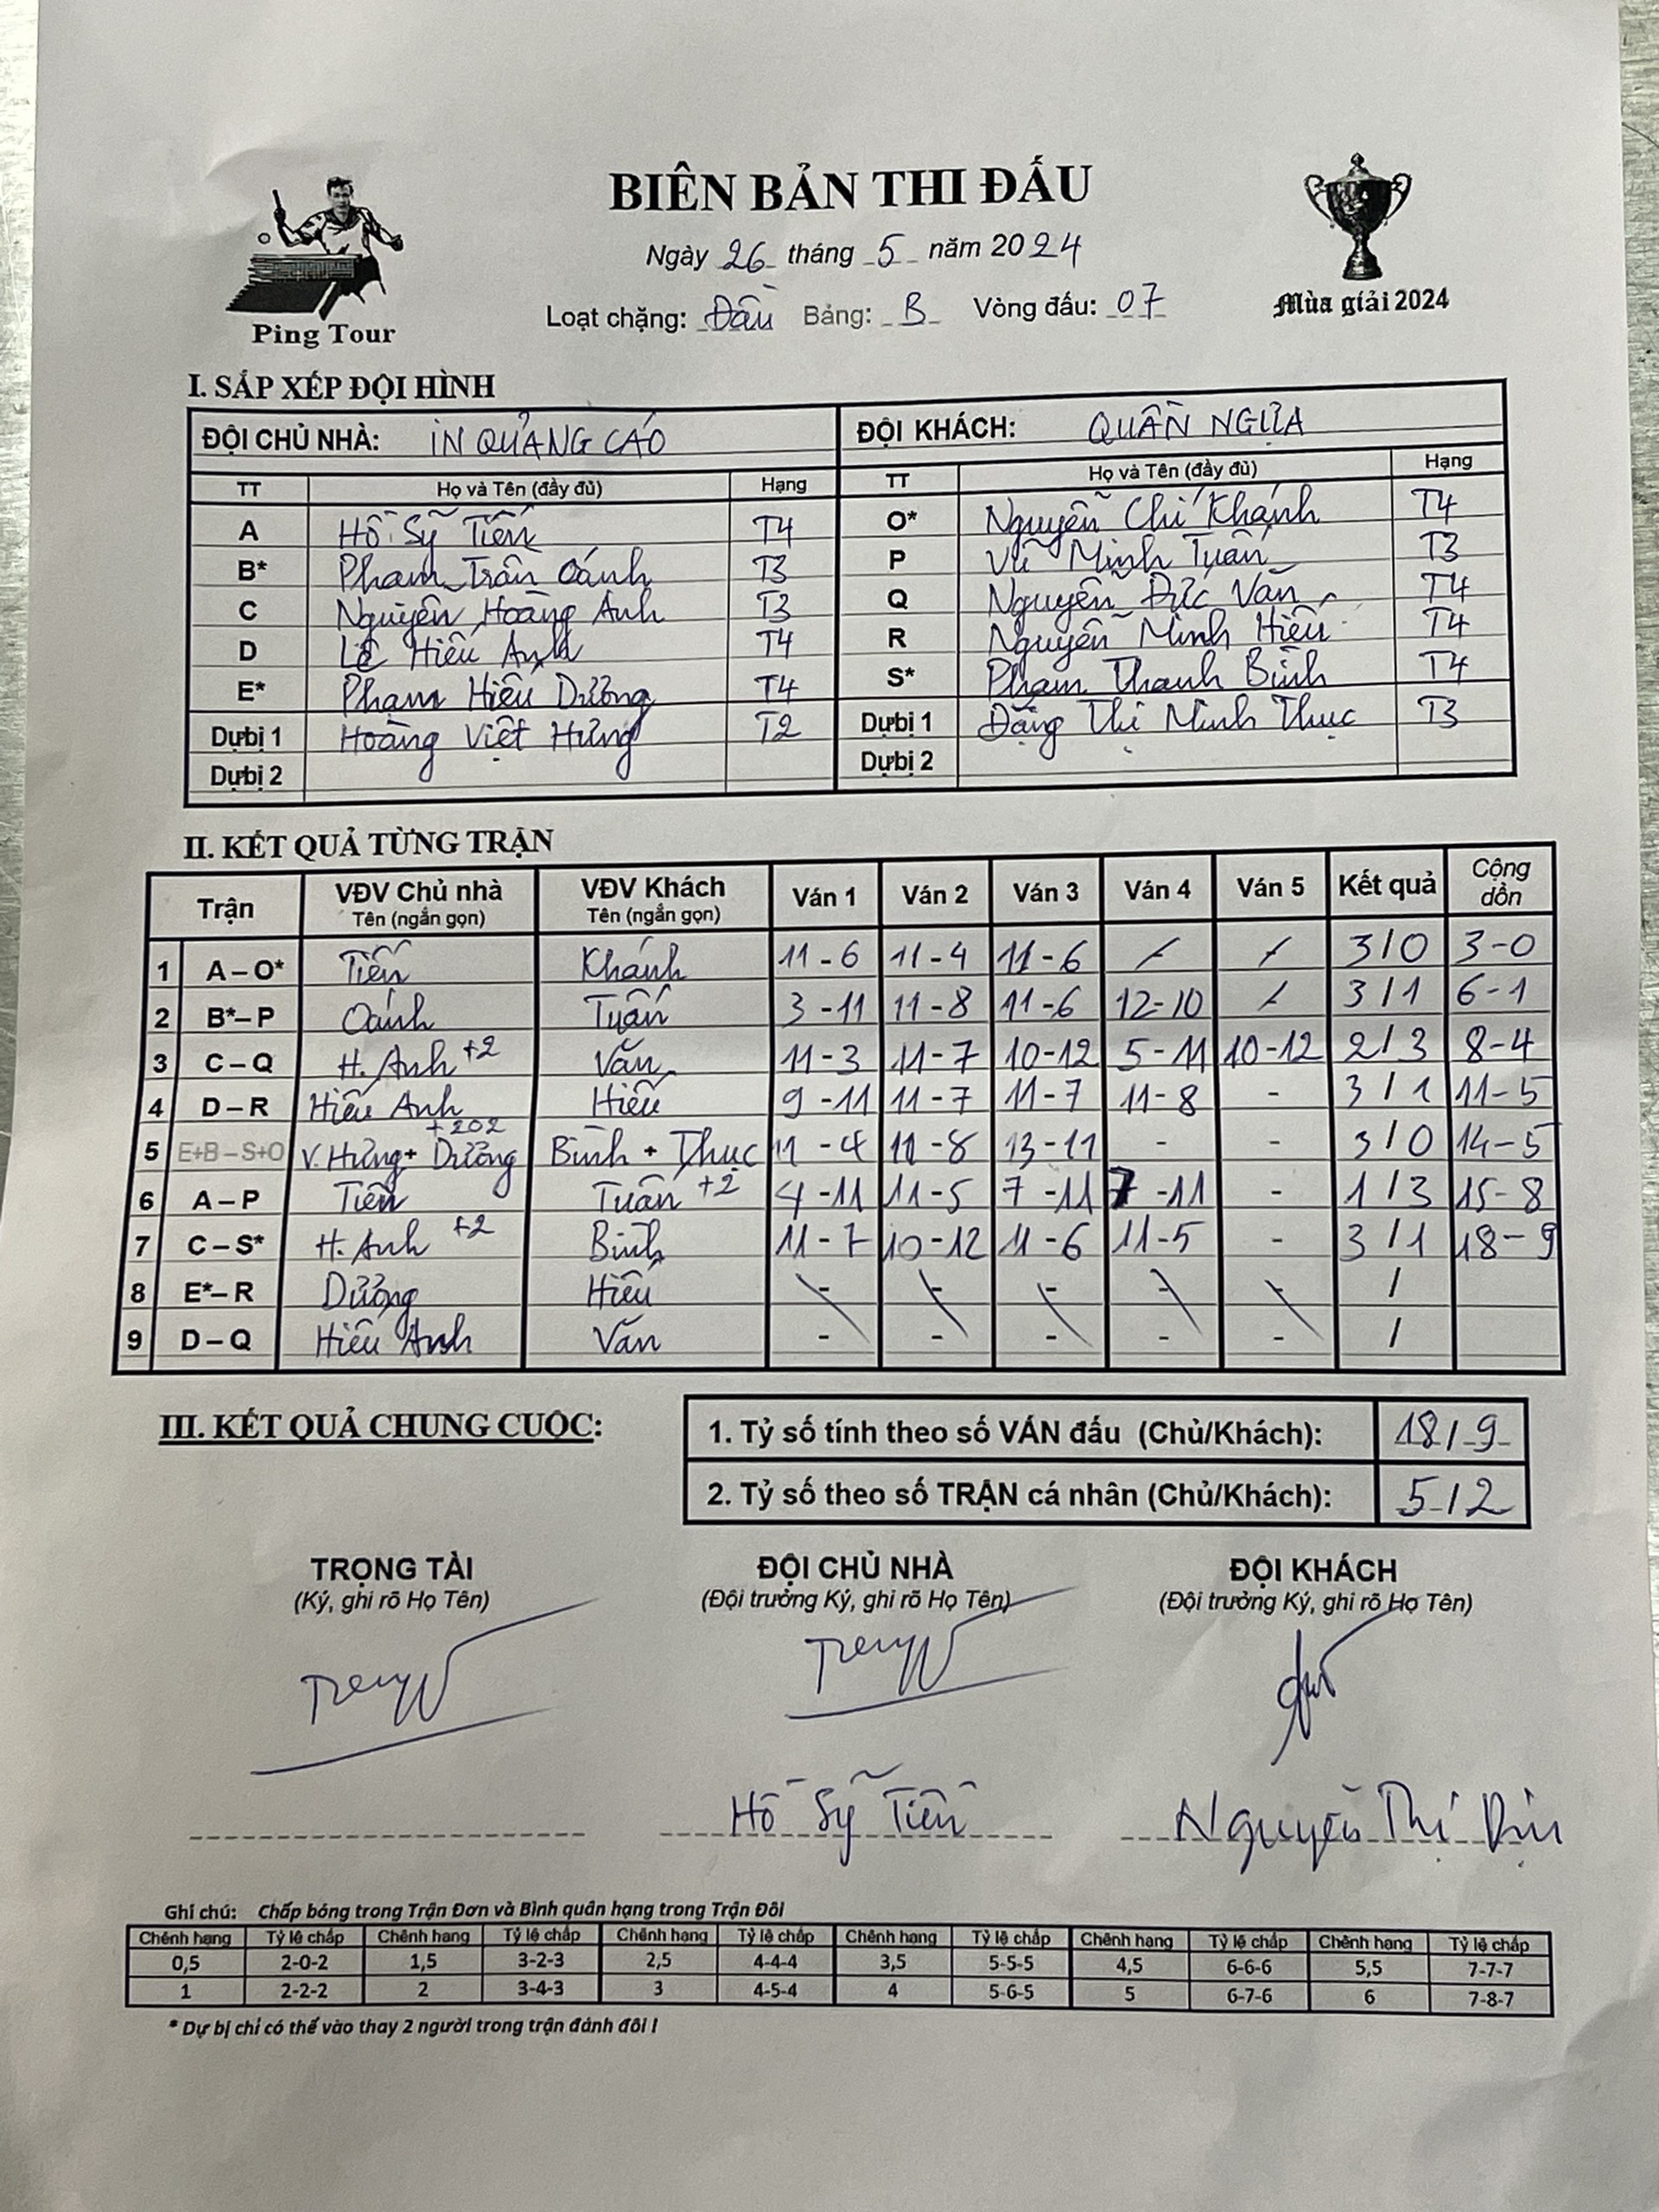 BIÊN BẢN THI ĐẤU
Ngày 26 tháng 5 năm 2024
Loạt chặng: Đấu Bảng: B Vòng đấu: 07
Ping Tour
Mùa giải 2024
I. SẮP XẾP ĐỘI HÌNH
ĐỘI CHỦ NHÀ: IN QUẢNG CÁO ĐỘI KHÁCH: QUẦN NGỰA
TT Họ và Tên (đầy đủ) Hạng TT Họ và Tên (đầy đủ) Hạng
A Hồ Sỹ Tiến T4 O* Nguyễn Chí Khánh T4
B* Phạm Trần Oánh T3 P Vũ Minh Tuấn T3
C Nguyễn Hoàng Anh T3 Q Nguyễn Đức Văn T4
D Lê Hiếu Anh T4 R Nguyễn Minh Hiếu T4
E* Phạm Hiếu Dưỡng T4 S* Phạm Thanh Bình T4
Dự bị 1 Hoàng Việt Hưng T2 Dự bị 1 Đặng Thị Minh Thục T3
Dự bị 2 Dự bị 2
II. KẾT QUẢ TỪNG TRẬN
Trận VĐV Chủ nhà Tên (ngắn gọn) VĐV Khách Tên (ngắn gọn) Ván 1 Ván 2 Ván 3 Ván 4 Ván 5 Kết quả Cộng dồn
1 A – O* Tiến Khánh 11 - 6 11 - 4 11 - 6 / / 3 / 0 3-0
2 B*– P Oánh Tuấn 3 - 11 11 - 8 11 - 6 12 - 10 / 3 / 1 6-1
3 C – Q H. Anh +2 Văn 11 - 3 11 - 7 10 - 12 5 - 11 10 - 12 2 / 3 8-4
4 D – R Hiếu Anh Hiếu 9 - 11 11 - 7 11 - 7 11 - 8 - 3 / 1 11-5
5 E+B – S+O V. Hưng + Dưỡng +202 Bình + Thục 11 - 4 11 - 8 13 - 11 - - 3 / 0 14-5
6 A – P Tiến Tuấn +2 4 - 11 11 - 5 7 - 11 7 - 11 - 1 / 3 15-8
7 C – S* H. Anh +2 Bình 11 - 7 10 - 12 11 - 6 11 - 5 - 3 / 1 18-9
8 E*– R Dưỡng Hiếu - - - - - /
9 D – Q Hiếu Anh Văn - - - - - /
III. KẾT QUẢ CHUNG CUỘC:
1. Tỷ số tính theo số VÁN đấu (Chủ/Khách): 18 / 9
2. Tỷ số theo số TRẬN cá nhân (Chủ/Khách): 5 / 2
TRỌNG TÀI ĐỘI CHỦ NHÀ ĐỘI KHÁCH
(Ký, ghi rõ Họ Tên) (Đội trưởng Ký, ghi rõ Họ Tên) (Đội trưởng Ký, ghi rõ Họ Tên)
Hồ Sỹ Tiến Nguyễn Thị
Ghi chú: Chấp bóng trong Trận Đơn và Bình quân hạng trong Trận Đôi
Chênh hạng Tỷ lệ chấp Chênh hạng Tỷ lệ chấp Chênh hạng Tỷ lệ chấp Chênh hạng Tỷ lệ chấp Chênh hạng Tỷ lệ chấp Chênh hạng Tỷ lệ chấp
0,5 2-0-2 1,5 3-2-3 2,5 4-4-4 3,5 5-5-5 4,5 6-6-6 5,5 7-7-7
1 2-2-2 2 3-4-3 3 4-5-4 4 5-6-5 5 6-7-6 6 7-8-7
* Dự bị chỉ có thể vào thay 2 người trong trận đánh đôi !